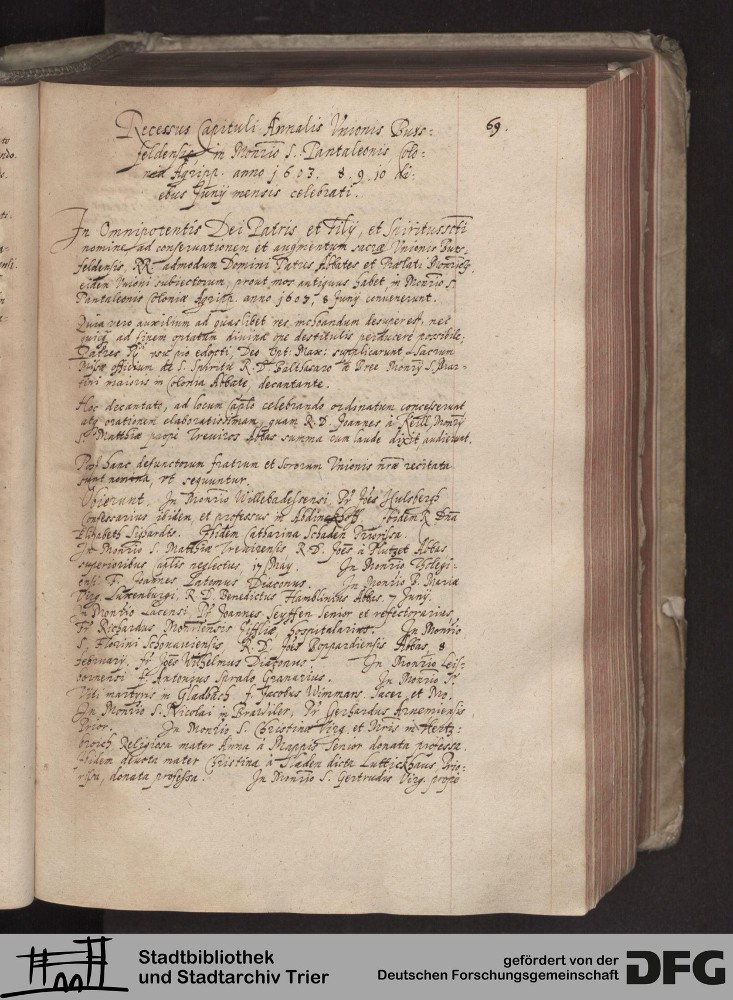 69.
Recessus Capituli Annalis Unionis Burs:
feldensis in Monrio S. Pantaleonis Colo:
niæ Agripp. anno 1603. 8. 9. 10 di:
ebus Junij mensis celebrati.
In Omnipotentis Dei Patris et Filij, et Spiritusscti
nomine, ad conservationem et augmentum sacræ Unionis Burs-
feldensis, RR. admodum Domini Patres Abbates et Prælati
eidem Unioni subiectorum, prout mos antiquus habet, in Monrio S.
Pantaleonis Coloniæ Agripp. anno 1603, 8 Junij convenerunt.
Quia vero auxilium ad quaslibet res inchoandum desuper est, nec
ad finem optatum divinæ ope destitutis perducere possibile,
Patres pio edocti, Deo Opt: Max: supplicarunt Sacrum
officium de S. Spiritu R. D. Balthasaro Monrij S. Mar-
tini maioris in Colonia Abbate, decantante.
Hoc decantato, ad locum Caplo celebrando ordinatum concesserunt
atq orationem elaboratissimam, quam R. D. Joannes à Keill, Monrij
S. Matthiæ prope Treviros Abbas summa cum laude dixit, audierunt.
Post hanc defunctorum fratrum et sororum Unionis nræ recitata
sunt nomina, ut sequuntur.
Obierunt. In Monrio Willebadessensi, Pr Joes Hulsbergh
Confessarius ibidem, et professus in Abdinckhoff. Ibidem R Dna
Elisabeth Sighardts. Ibidem Catharina Schaden Priorissa.
In Monrio S. Matthiæ Trevirensis, R. D. Joes à Plutzet Abbas
superioribus Caplis neglectus, 17 May. In Monrio Tholegi-
ensi F. Joannes Latomus Diaconus. In Monrio B. Mariæ
Virg. Luxenburgi, R. D. Benedictus Hamblinius Abbas, 7 Junij.
In Monrio Lacensi, Pr Joannes Seyffen Senior et refectorarius,
Fr Richardus hospitalarius. In Monrio
S. Florini Schonaviensis R. D. Joes Boppardiensis Abbas, 8
february. fr Joes Wilhelmus Diaconus. In Monrio Leis-
bornensi fr Antonius Sprado Granarius. In Monrio Sti
Viti martyris in Gladbach, f. Jacobus Wimmars Sacer. et Mo.
In Monrio S. Nicolai in Brawiler, Pr Gerhardus Arnemiensis
Prior. In Monrio S. Christinæ Virg. et Mris in Hertz:
broich Religiosa mater Anna à Mappis Senior donata professa.
Ibidem devota mater Christina à Staden dicta Luttickhaus Prio-
rissa, donata professa. In Monrio S. Gertrudis Virg. prope
Stadtbibliothek
und Stadtarchiv Trier
gefördert von der
Deutschen Forschungsgemeinschaft
DFG